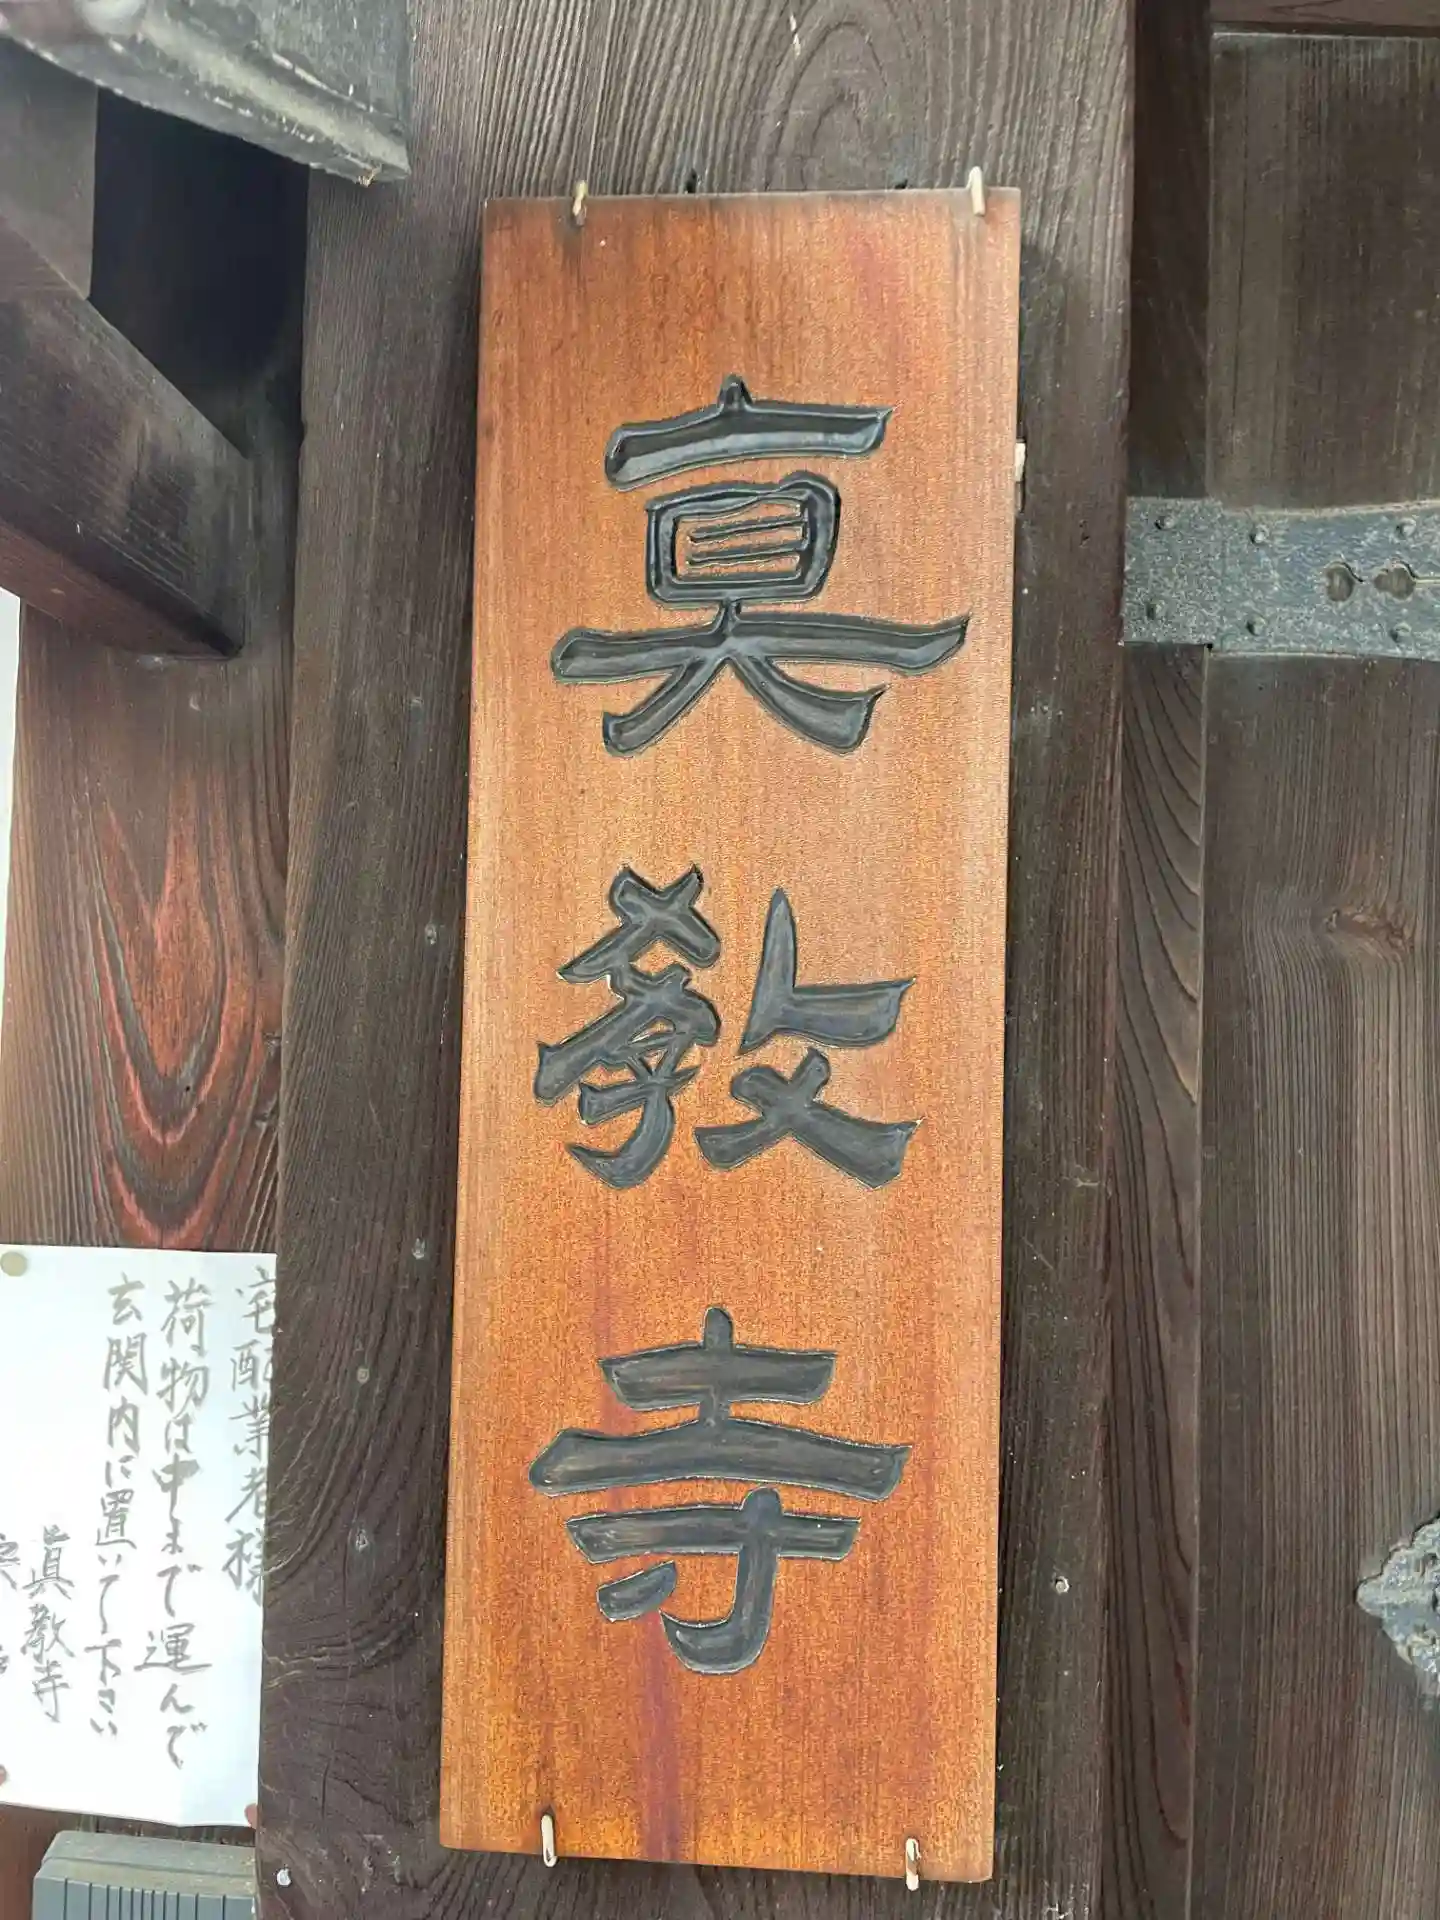 真教寺
宅配業者様
荷物は中まで運んで
玄関内に置いて下さい
眞教寺